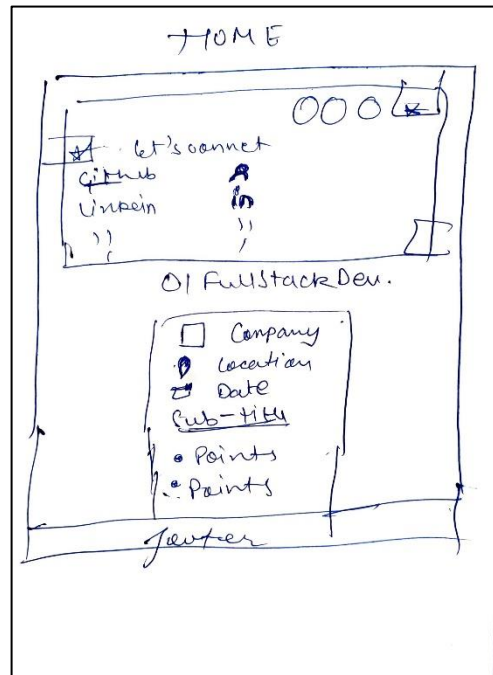 HOME
let's connet
Github
Linkein in
,, ,,
01 FullStackDev.
Company
Location
Date
Sub-title
• Points
• Points